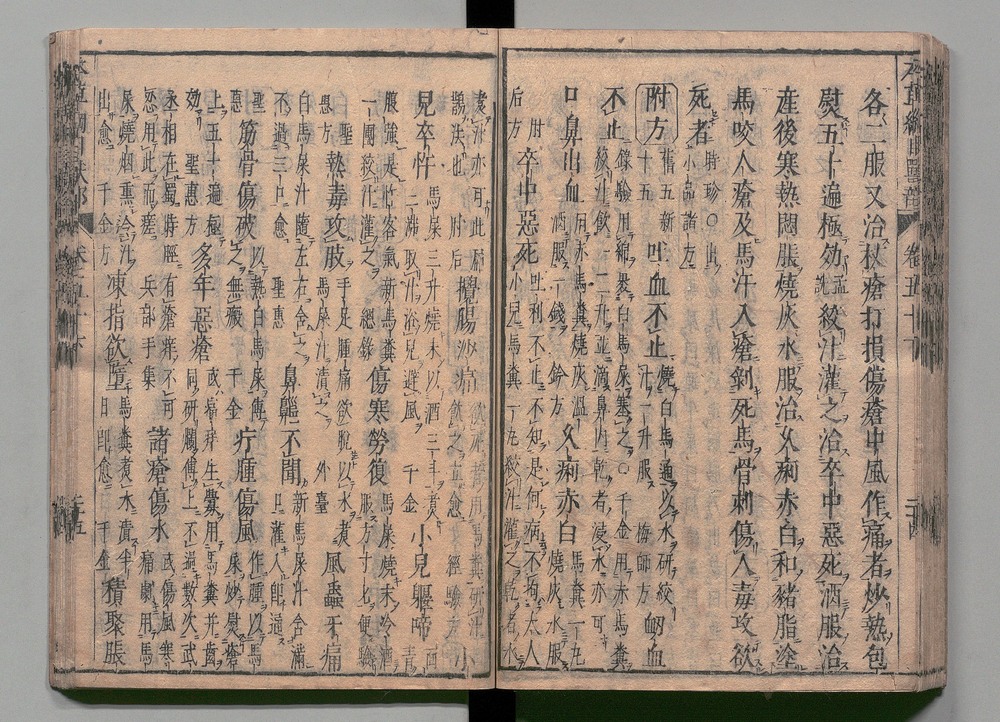 各二服又治杖瘡打損傷瘡中風作痛者炒熱包
熨五十遍極効 孟詵 絞汁灌之治卒中惡死酒服治
産後寒熱悶脹燒灰水服治久痢赤白和豬脂塗
馬咬人瘡及馬汗入瘡剝死馬骨刺傷人毒攻欲
死者 時珍〇出小品諸方
附方 舊五新十五 吐血不止 燒白馬通以水研絞汁一升服 梅師方 衄血
不止 綿裹白馬屎塞之〇千金用赤馬糞絞汁飲一二升並滴鼻內乾者浸水亦可
口鼻出血 用赤馬糞燒灰溫酒服一錢 鈐方 久痢赤白 馬糞一丸燒灰水服
肘后方 卒中惡死 吐利不止不知是何病不拘大人小兒馬糞一丸絞汁灌之乾者水
煑汁亦可此
鵲法也 肘后 攪腸沙痛 欲死者用馬糞研汁飲之立愈 經驗方 小
兒卒忤 馬屎三升燒末以酒三斗煑三沸取汁浴兒避風 千金 小兒軀啼 面青
腹強是忤客氣新馬糞一團絞汁灌之 總錄 傷寒勞復 馬屎燒末冷酒服方寸匕便驗
聖惠方 熱毒攻肢 手足腫痛欲脫以水煑馬屎汁漬之 外臺 風蟲牙痛
白馬屎汁隨左右含之不過三口愈 聖惠 鼻齆不聞 新馬屎汁含滿口灌人即通
聖惠 筋骨傷破 以熱白馬屎傅之無瘢 千金 疔腫傷風 作腫以馬屎炒熨瘡
上五十遍極効 聖惠方 多年惡瘡 或痛痒生䘌用馬糞并齒同研爛傅上不過數次武
丞相在蜀時脛有瘡痒不可忍用此而瘥 兵部手集 諸瘡傷水 或傷風寒痛劇用馬
屎燒烟熏令汁出愈 千金方 凍指欲墮 馬糞煑水漬半日即愈 千金 積聚脹